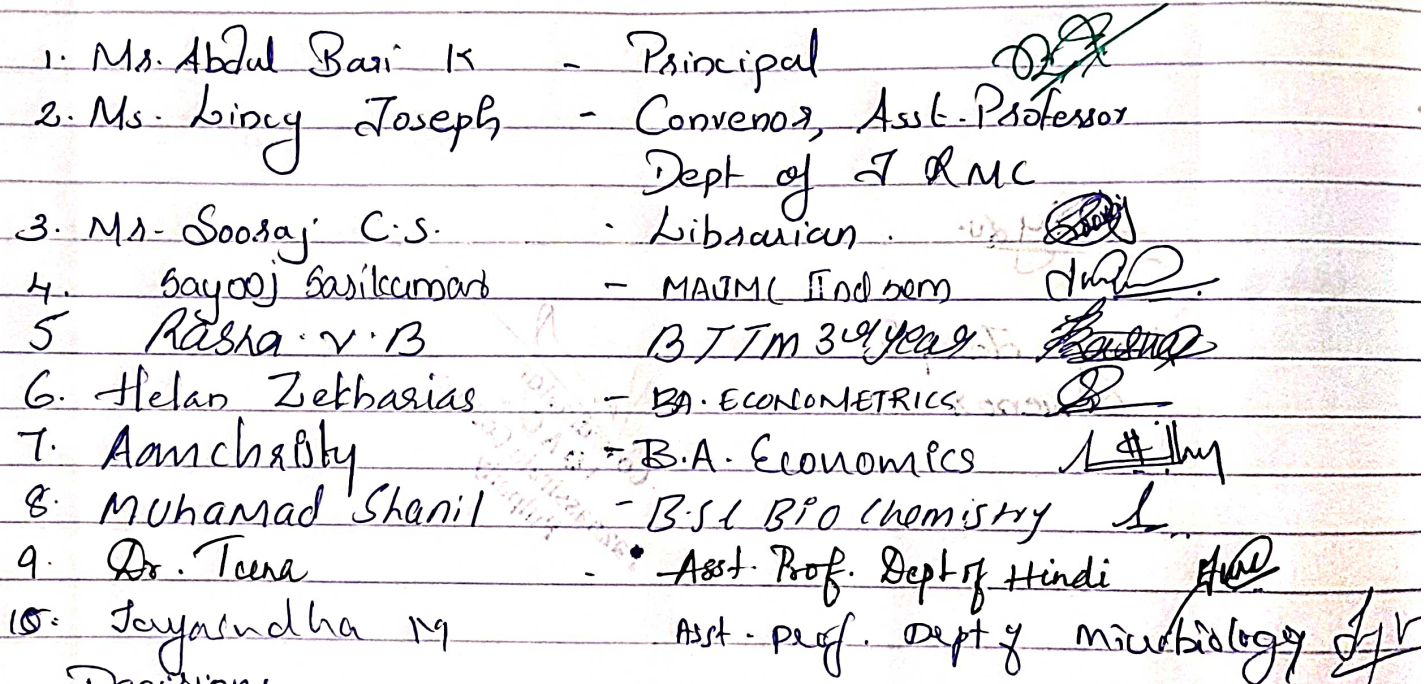 1. Mr. Abdul Bari K - Principal
2. Ms. Lincy Joseph - Convenor, Asst. Professor
Dept of J & MC
3. Mr. Sooraj C.S. - Librarian.
4. Sayooj Sasikumar - MAJMC IInd sem
5 Rasha. V. B BTTM 3rd year
6. Helan Zekharias - BA. ECONOMETRICS
7. Aamchristy - B.A. Economics
8. Muhamad Shanil - B.Sc Bio Chemistry
9. Dr. Teena - Asst. Prof. Dept of Hindi
10. Jayasudha M Asst. prof. Dept of microbiology
Decision: